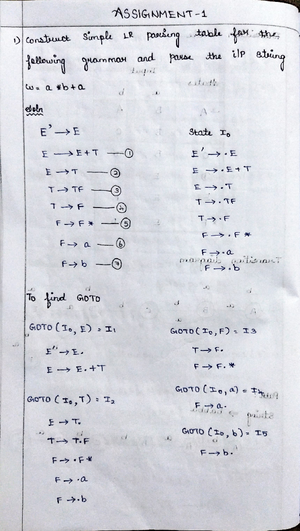 ASSIGNMENT-1
1) Construct Simple LR parsing table for the
following grammar and parse the i/p string
w = a * b + a
Soln
E' → E
E → E+T — ①
E → T — ②
T → TF — ③
T → F — ④
F → F * — ⑤
F → a — ⑥
F → b — ⑦
State I₀
E' → .E
E → .E+T
E → .T
T → .TF
T → .F
F → .F *
F → .a
F → .b
To find GOTO
GOTO (I₀, E) = I₁
E' → E.
E → E.+T
GOTO (I₀, T) = I₂
E → T.
T → T.F
F → .F *
F → .a
F → .b
GOTO (I₀, F) = I3
T → F.
F → F.*
GOTO (I₀, a) = I4
F → a.
GOTO (I₀, b) = I5
F → b.